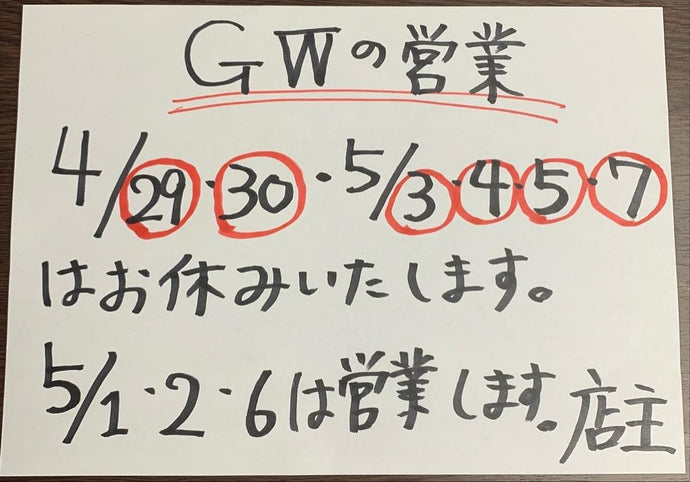 GWの営業
4/29・30・5/3・4・5・7
はお休みいたします。
5/1・2・6は営業します。店主